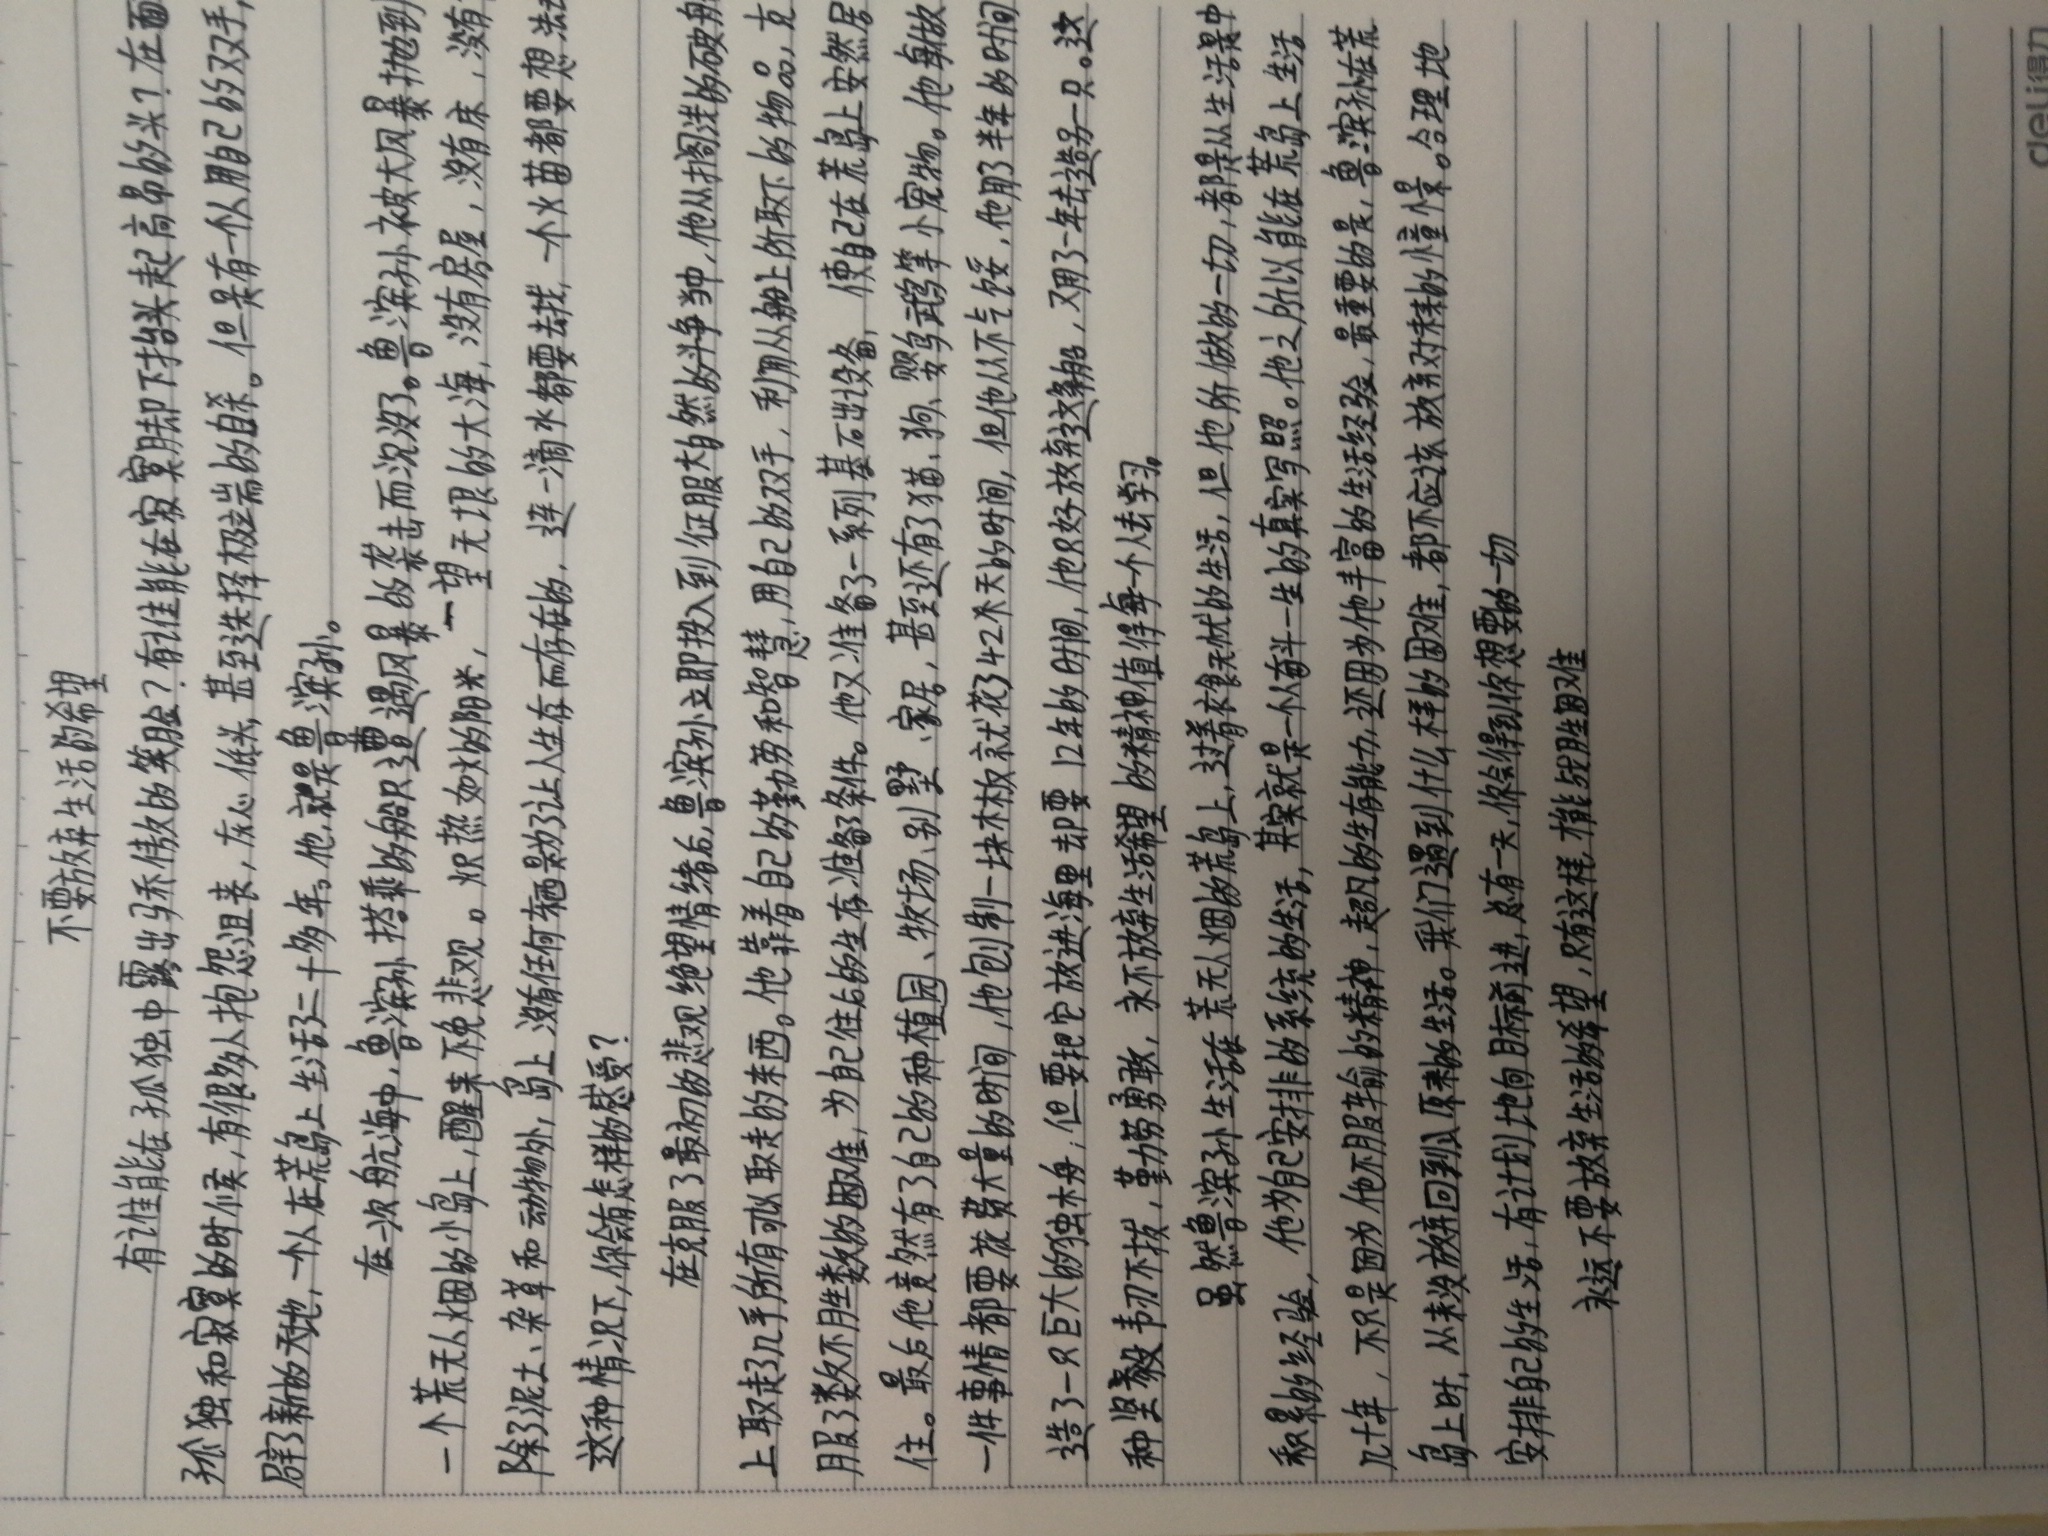 不要放弃生活的希望
有谁能在孤独中露出乔傲的笑脸？有谁能在寂寞却下抬头起高昂的头？在面
孤独和寂寞的时候，有很多人抱怨沮丧，灰心低头，甚至选择极端的自杀。但是有一个人用自己的双手，
辟了新的天地，一个人在荒岛上生活了二十多年。他，就是鲁滨孙。
在一次航海中，鲁滨孙搭乘的船只遭遇风暴的袭击而沉没了。鲁滨孙被大风暴抛到
一个荒无人烟的小岛上，醒来不免悲观。炽热如火的阳光，一望无垠的大海，没有房屋，没有床，没有
除了泥土、杂草和动物外，岛上没有任何东西是为了让人生存而存在的，连一滴水都要去找，一个火苗都要想法
这种情况下，你会有怎样的感受？
在克服了最初的悲观绝望情绪后，鲁滨孙立即投入到征服大自然的斗争当中，他从搁浅的破船
上取走了几乎所有可以取走的东西。他靠着自己的勤劳和智慧，用自己的双手，利用从船上所取下的物品，克
服了数不胜数的困难，为自己住后的生存准备了条件。他又准备了一系列基石出设备，使自己在荒岛上安然居
住。最后他竟然有了自己的种植园、牧场、别墅、家居，甚至还有了猫、狗、婴鸟武鸟等小宠物。他每做
一件事情都要花费大量的时间，他刨制一块木板就花了42天的时间，但他从不气馁，他用了半年的时间
造了一只巨大的独木舟，但要把它放进海里却要12年的时间，他只好放弃了这条船，又用了一年去造另一只。这
种坚毅韦刃不拔，勤劳勇敢，永不放弃生活希望的精神值得每个人去学习。
虽然鲁滨孙生活在荒无人烟的荒岛上，过着衣食无忧的生活，但他所做的一切，都是从生活中
积累的经验，他为自己安排的系统的生活，其实就是一个人奋斗一生的真实写照。他之所以能在荒岛上生活
几十年，不只是因为他不服输的精神，超凡的生存能力，还因为他丰富的生活经验，最重要的是，鲁滨孙在荒
岛上时，从未放弃回到原来的生活。我们遇到什么样的困难，都不应该放弃对未来的憧憬。合理地
安排自己的生活，有计划地向目标前进，总有一天，你会得到你想要的一切
永远不要放弃生活的希望，只有这样，才能战胜困难
deli得力